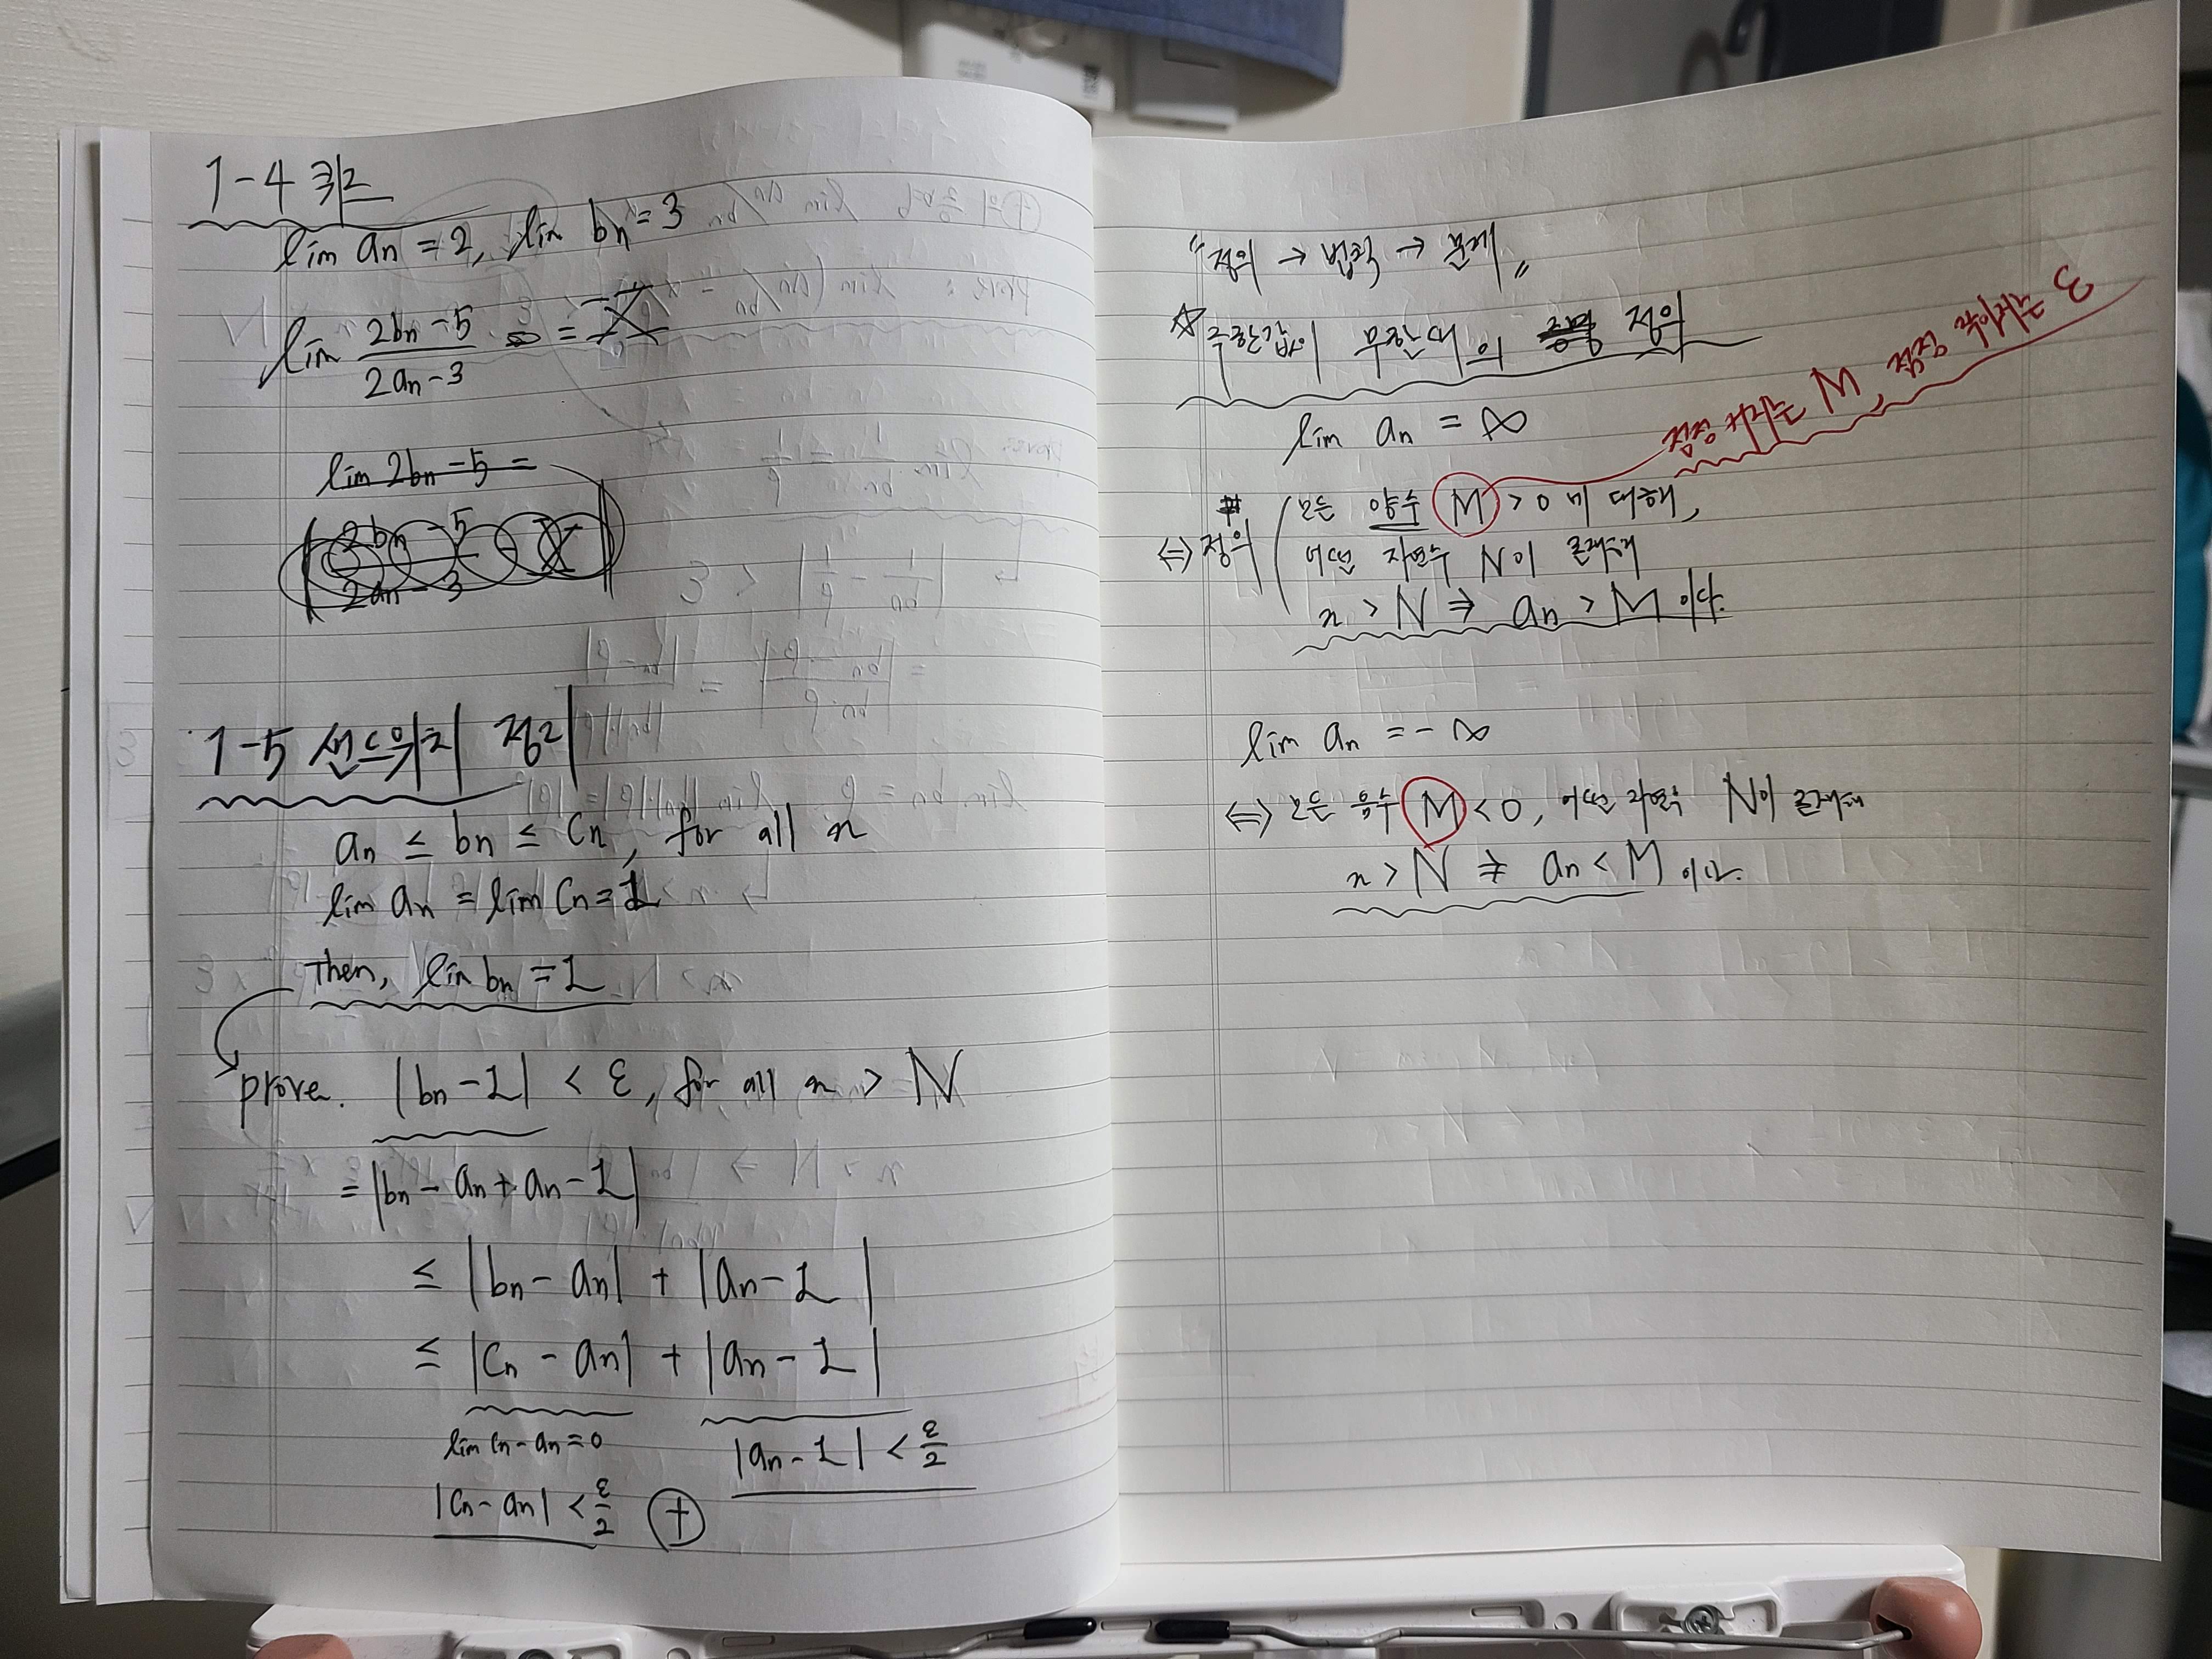 1-4 퀴즈
lim an = 2, lim bn = 3
lim (2bn - 5)/(2an - 3) =
lim 2bn - 5 =
2bn - 5
2an - 3
1-5 샌드위치 정리
an ≤ bn ≤ Cn, for all n
lim an = lim Cn = L
Then, lim bn = L
prove. |bn - L| < ε, for all n > N
= |bn - an + an - L|
≤ |bn - an| + |an - L|
≤ |Cn - an| + |an - L|
lim Cn - an = 0
|an - L| < ε/2
|Cn - an| < ε/2 ⊕
"정의 → 법칙 → 문제"
☆ 극한값이 무한대의 증명 정의
점점 커지는 M, 점점 작아지는 ε
lim an = ∞
⇔ 정의 모든 양수 M > 0 에 대해,
어떤 자연수 N이 존재해
n > N ⇒ an > M 이다.
lim an = - ∞
⇔ 모든 음수 M < 0, 어떤 자연수 N이 존재해
n > N ⇒ an < M 이다.